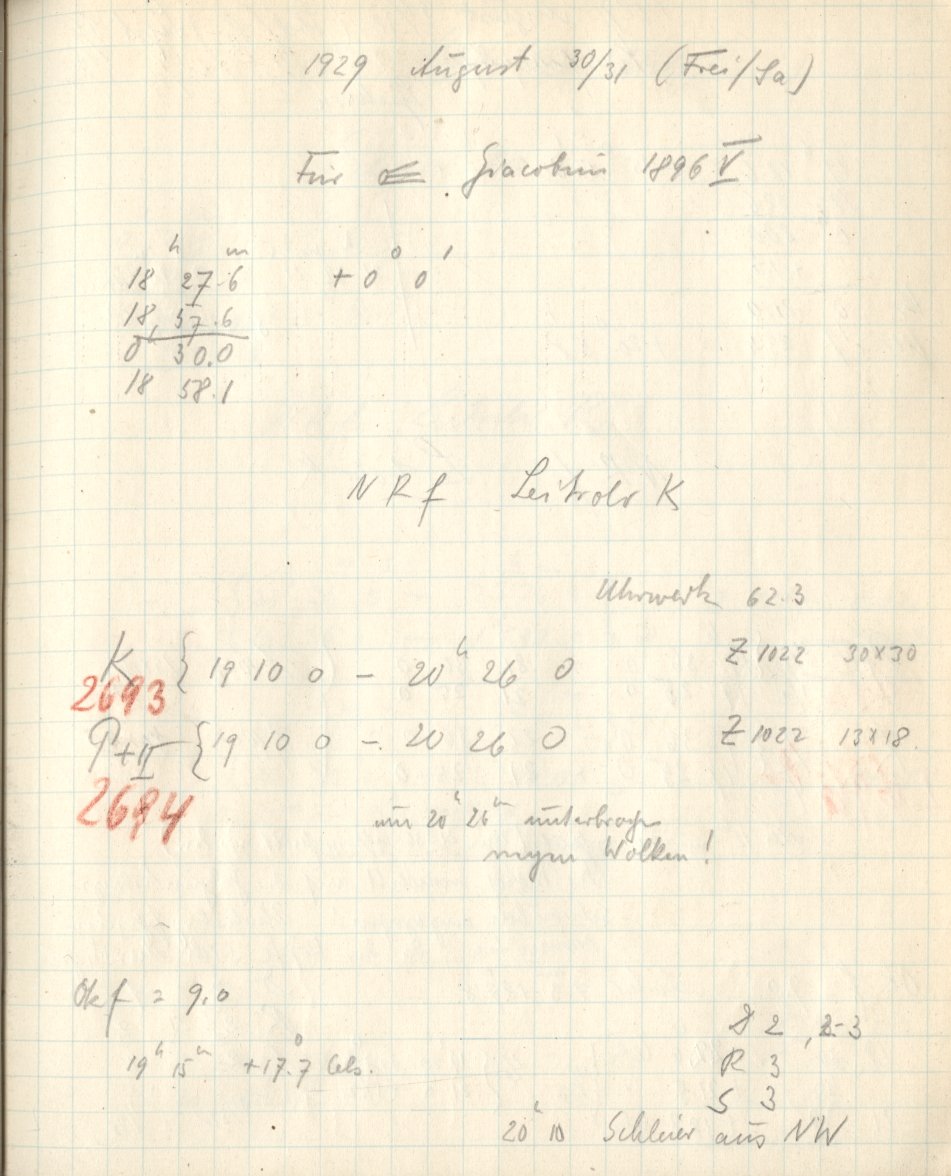 1929 August 30/31 (Frei/Sa)
Für ☄ Giacobini 1896 V
h m
18 27.6 + 0° 0'
18 57.6
0 30.0
18 58.1
N R f Leitrohr K
Uhrwerk 62.3
K { 19 10 0 – 20h 26 0 Z 1022 30x30
2693
P+II {19 10 0 – 20 26 0 Z 1022 13x18
2694
um 20h 26m unterbrochen
wegen Wolken!
Okf = 9.0
D 2, 2-3
19h 15m +17.7° Cels.
R 3
S 3
20h 10 Schleier aus NW